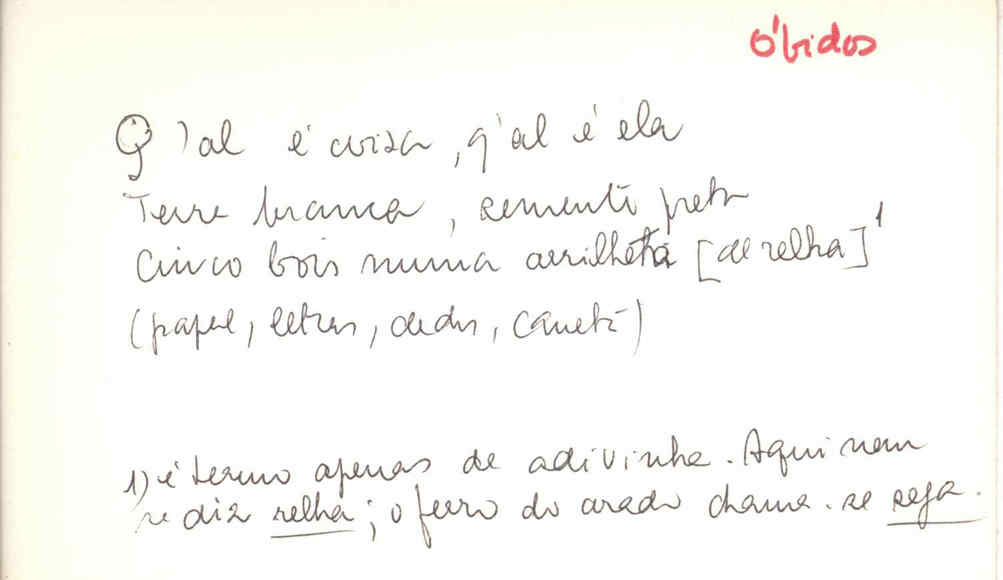 Óbidos
Q'al é coisa, q'al é ela
Terra branca, semente preta
Cinco bois numa arrilheta [de relha]¹
(papel, letras, dedos, caneta)
1) é termo apenas de adivinha. Aqui nem
se diz relha; o ferro do arado chama-se sega.